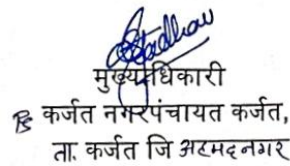 मुख्याधिकारी
कर्जत नगरपंचायत कर्जत,
ता. कर्जत जि अहमदनगर